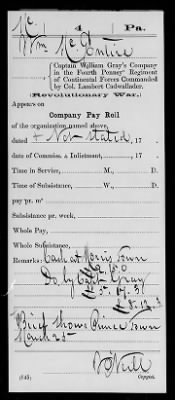 Mc 4 Pa.
Wm Mc Entire
Captain William Gray's Company
in the Fourth Penny' Regiment
of Continental Forces Commanded
by Col. Lambert Cadwallader.
(Revolutionary War.)
Appears on
Company Pay Roll
of the organization named above,
dated + Not stated, 17
date of Commiss. or Inlistment, 17
Time in Service, M., D.
Time of Subsistance, W., D.
pay pr. m°
Subsistance pr. week,
Whole Pay,
Whole Subsistance,
Remarks: Cash at Morris Town
Do. by Capt Gray
Brief shows Prince Town
March 25
(545) Copyist.